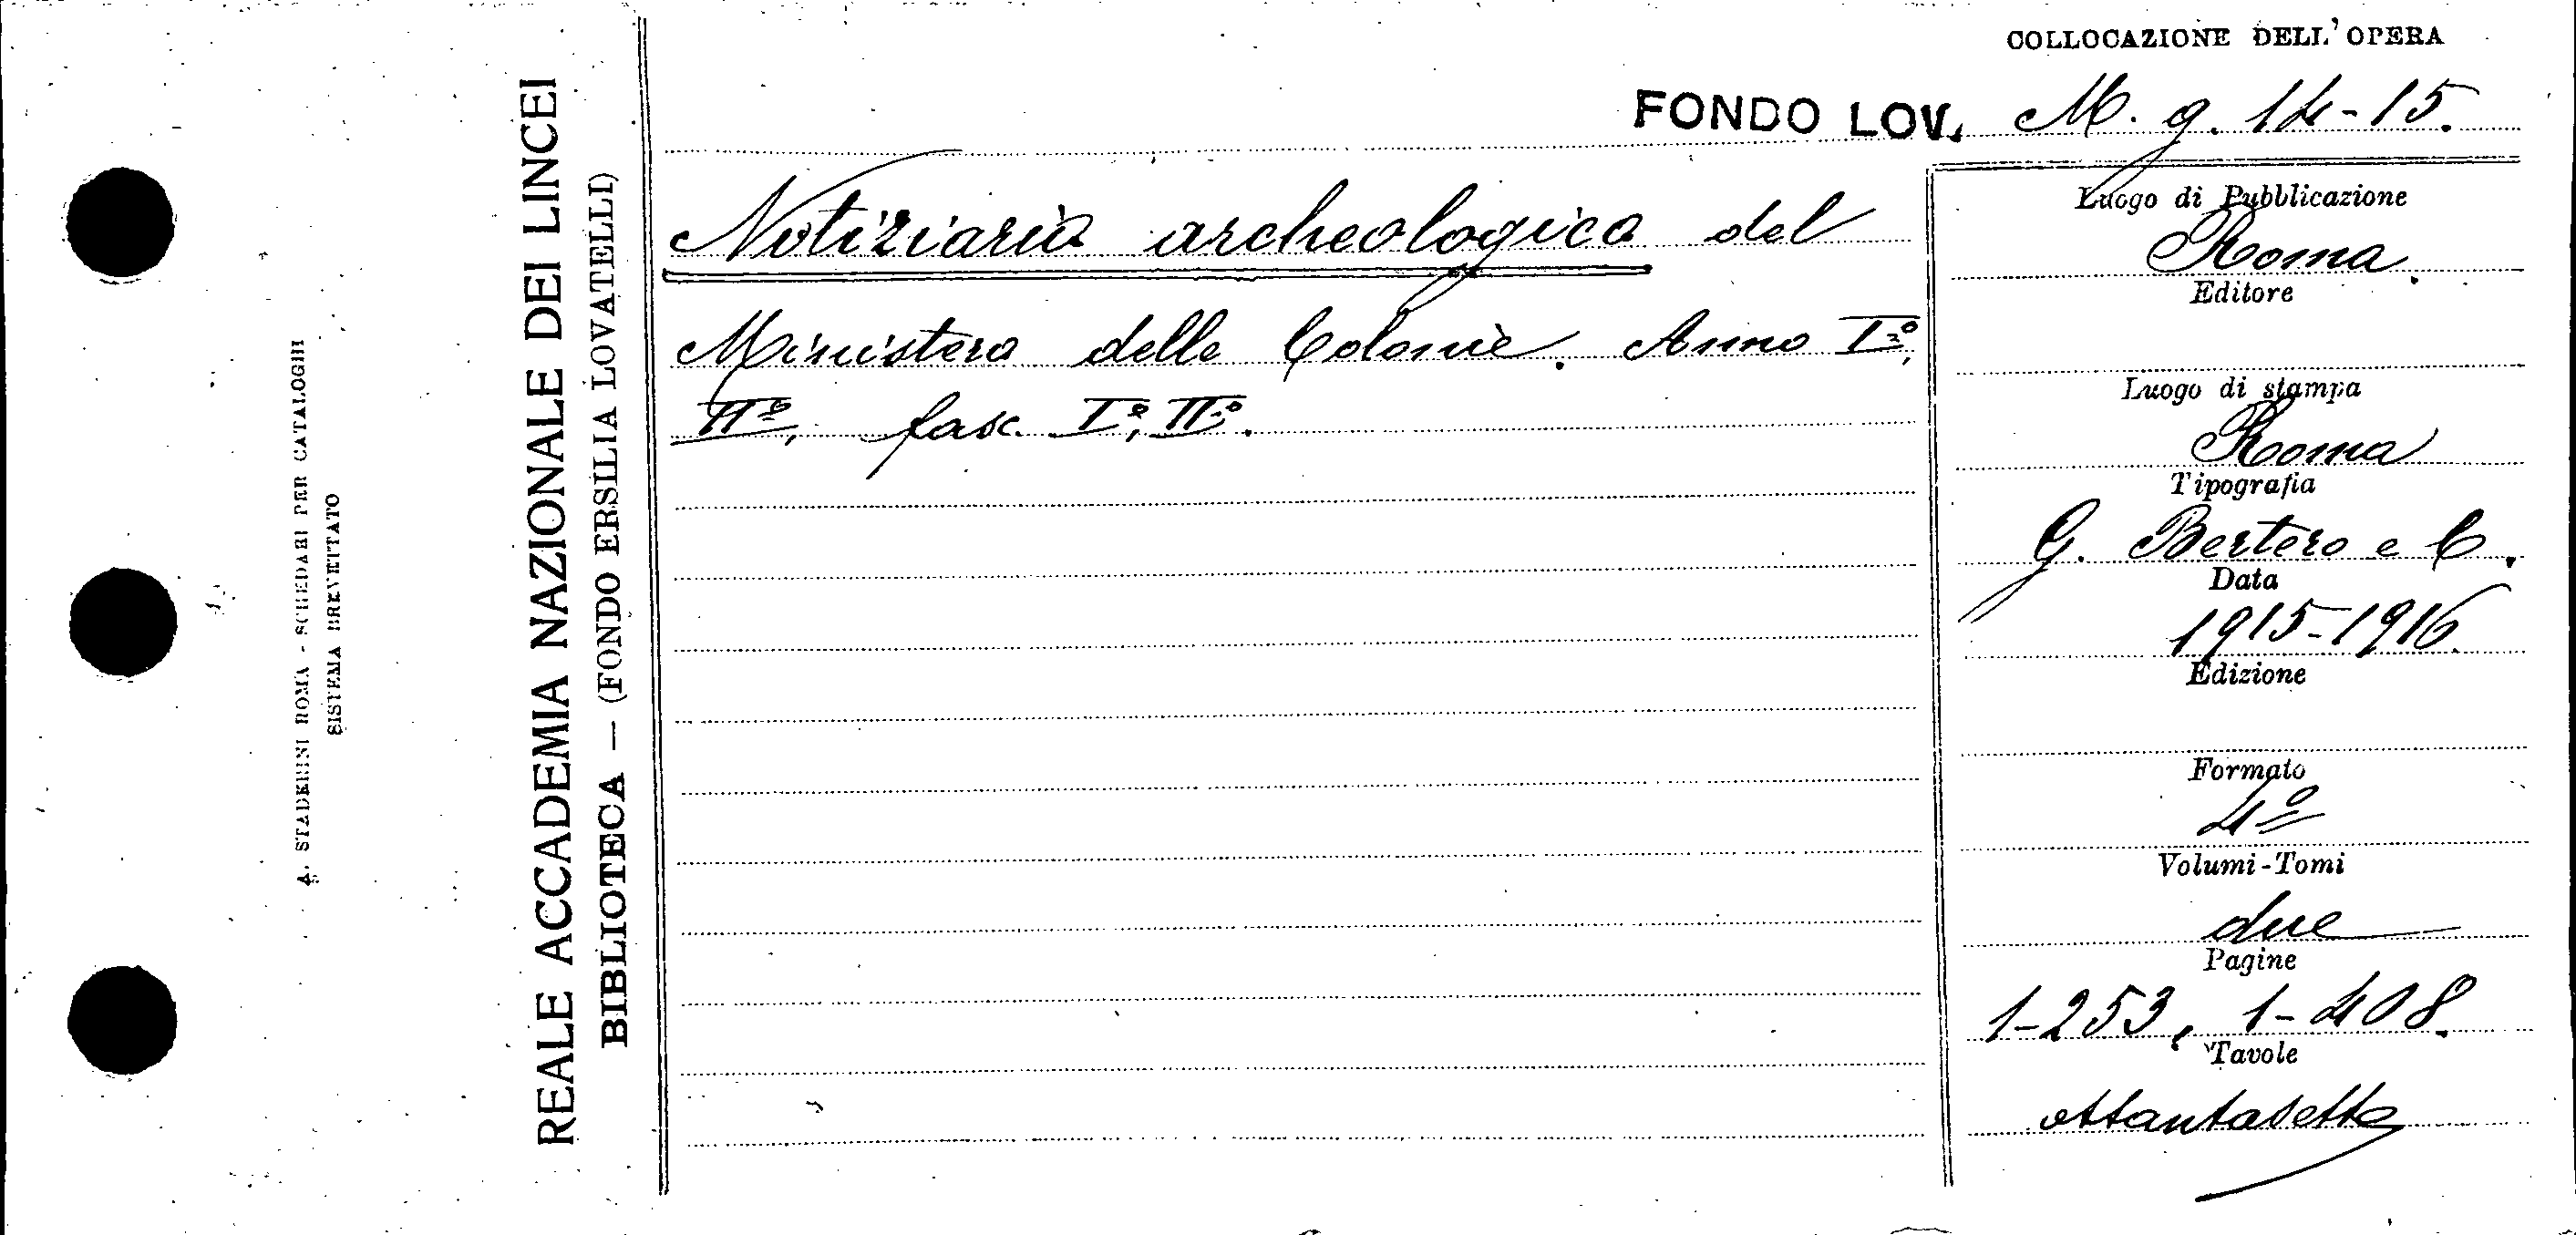 COLLOCAZIONE DELL'OPERA
FONDO LOV. M. g. 14-15.
Notiziario archeologico del
Ministero delle Colonie. Anno Iº,
IIº, fasc. Iº, IIº.
Luogo di Pubblicazione
Roma.
Editore
Luogo di stampa
Roma
Tipografia
G. Bertero e C.
Data
1915-1916.
Edizione
Formato
4º
Volumi-Tomi
due
Pagine
1-253, 1-408.
Tavole
ottantasette
REALE ACCADEMIA NAZIONALE DEI LINCEI
BIBLIOTECA — (FONDO ERSILIA LOVATELLI)
A. STADERINI ROMA - SCHEDARI PER CATALOGHI
SISTEMA BREVETTATO